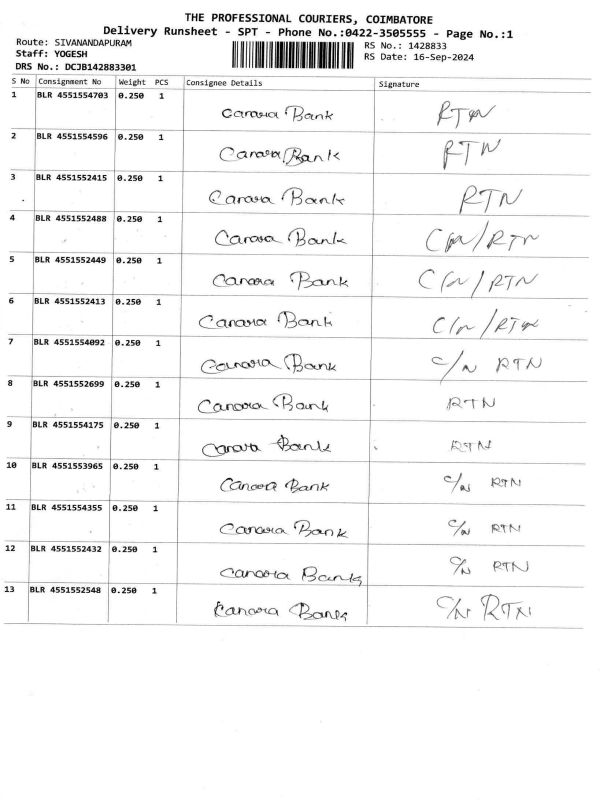 THE PROFESSIONAL COURIERS, COIMBATORE
Delivery Runsheet - SPT - Phone No.:0422-3505555 - Page No.:1
Route: SIVANANDAPURAM RS No.: 1428833
Staff: YOGESH RS Date: 16-Sep-2024
DRS No.: DCJB142883301
S No Consignment No Weight PCS Consignee Details Signature
1 BLR 4551554703 0.250 1 Canara Bank RTN
2 BLR 4551554596 0.250 1 Canara Bank RTN
3 BLR 4551552415 0.250 1 Canara Bank RTN
4 BLR 4551552488 0.250 1 Canara Bank C/N/RTN
5 BLR 4551552449 0.250 1 Canara Bank C/N/RTN
6 BLR 4551552413 0.250 1 Canara Bank C/N/RTN
7 BLR 4551554092 0.250 1 Canara Bank C/N RTN
8 BLR 4551552699 0.250 1 Canara Bank RTN
9 BLR 4551554175 0.250 1 Canara Bank RTN
10 BLR 4551553965 0.250 1 Canara Bank C/N RTN
11 BLR 4551554355 0.250 1 Canara Bank C/N RTN
12 BLR 4551552432 0.250 1 Canara Bank C/N RTN
13 BLR 4551552548 0.250 1 Canara Bank C/N RTN